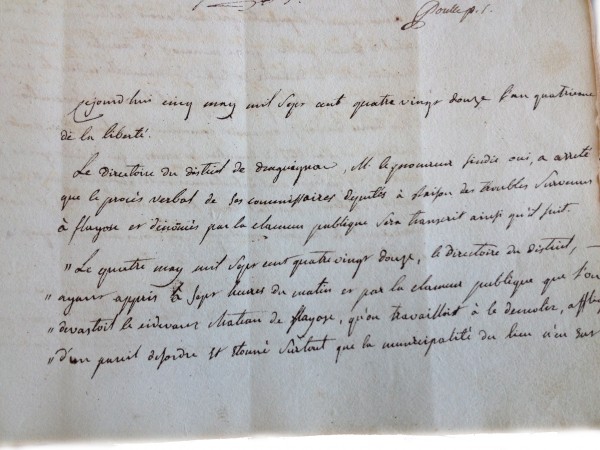 Cejourd'hui cinq may mil Sept cent quatre vingt douze l'an quatrieme
de la liberté.
Le Directoire du district de draguignan, M. le procureur sindic oui, a arreté
que le procès verbal de Ses commissaires députés à Raison des troubles Survenus
à flayosc et dénoncés par la clameur publique Sera transcrit ainsi qu'il suit.
" Le quatre may mil Sept cent quatre vingt douze, le directoire du district,
" ayant appris à Sept heures du matin et par la clameur publique que l'on
" devastoit le cidevant chateau de flayosc, qu'on travailloit à le demolir, affligé
" d'un pareil desordre et étonné Surtout que la municipalité du lieu n'en eut